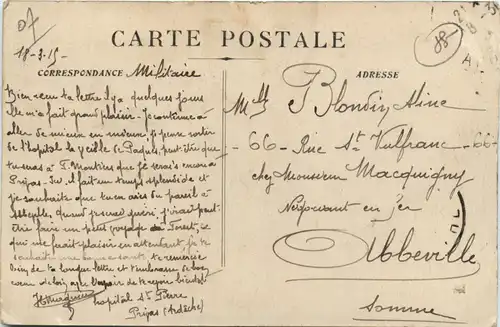 07
18-3-15
CARTE POSTALE
CORRESPONDANCE Militaire
ADRESSE
88
Bien reçu ta lettre il y a quelques jours
Elle m'a fait grand plaisir. Je continue à
aller de mieux en mieux, je pense sortir
de l'hôpital la veille de Pâques, peut-être que
tu seras à que je serais encore à
Privas. Ici il fait un temps splendide et
je souhaite que tu en aies du pareil à
Abbeville, quand je serai guéri, j'irai peut-
être faire un petit voyage Forest, ce
qui me ferait plaisir en attendant je te
souhaite une bonne santé te remercie
bien de ta longue lettre et t'embrasse de bon
cœur de loin que l'espoir de te revoir bientôt
hôpital St Pierre
Privas (Ardèche)
Mlle Blondin Aline
-66- Rue St Vulfranc -66-
chez Monsieur Macquigny
Négociant en fer
Abbeville
Somme